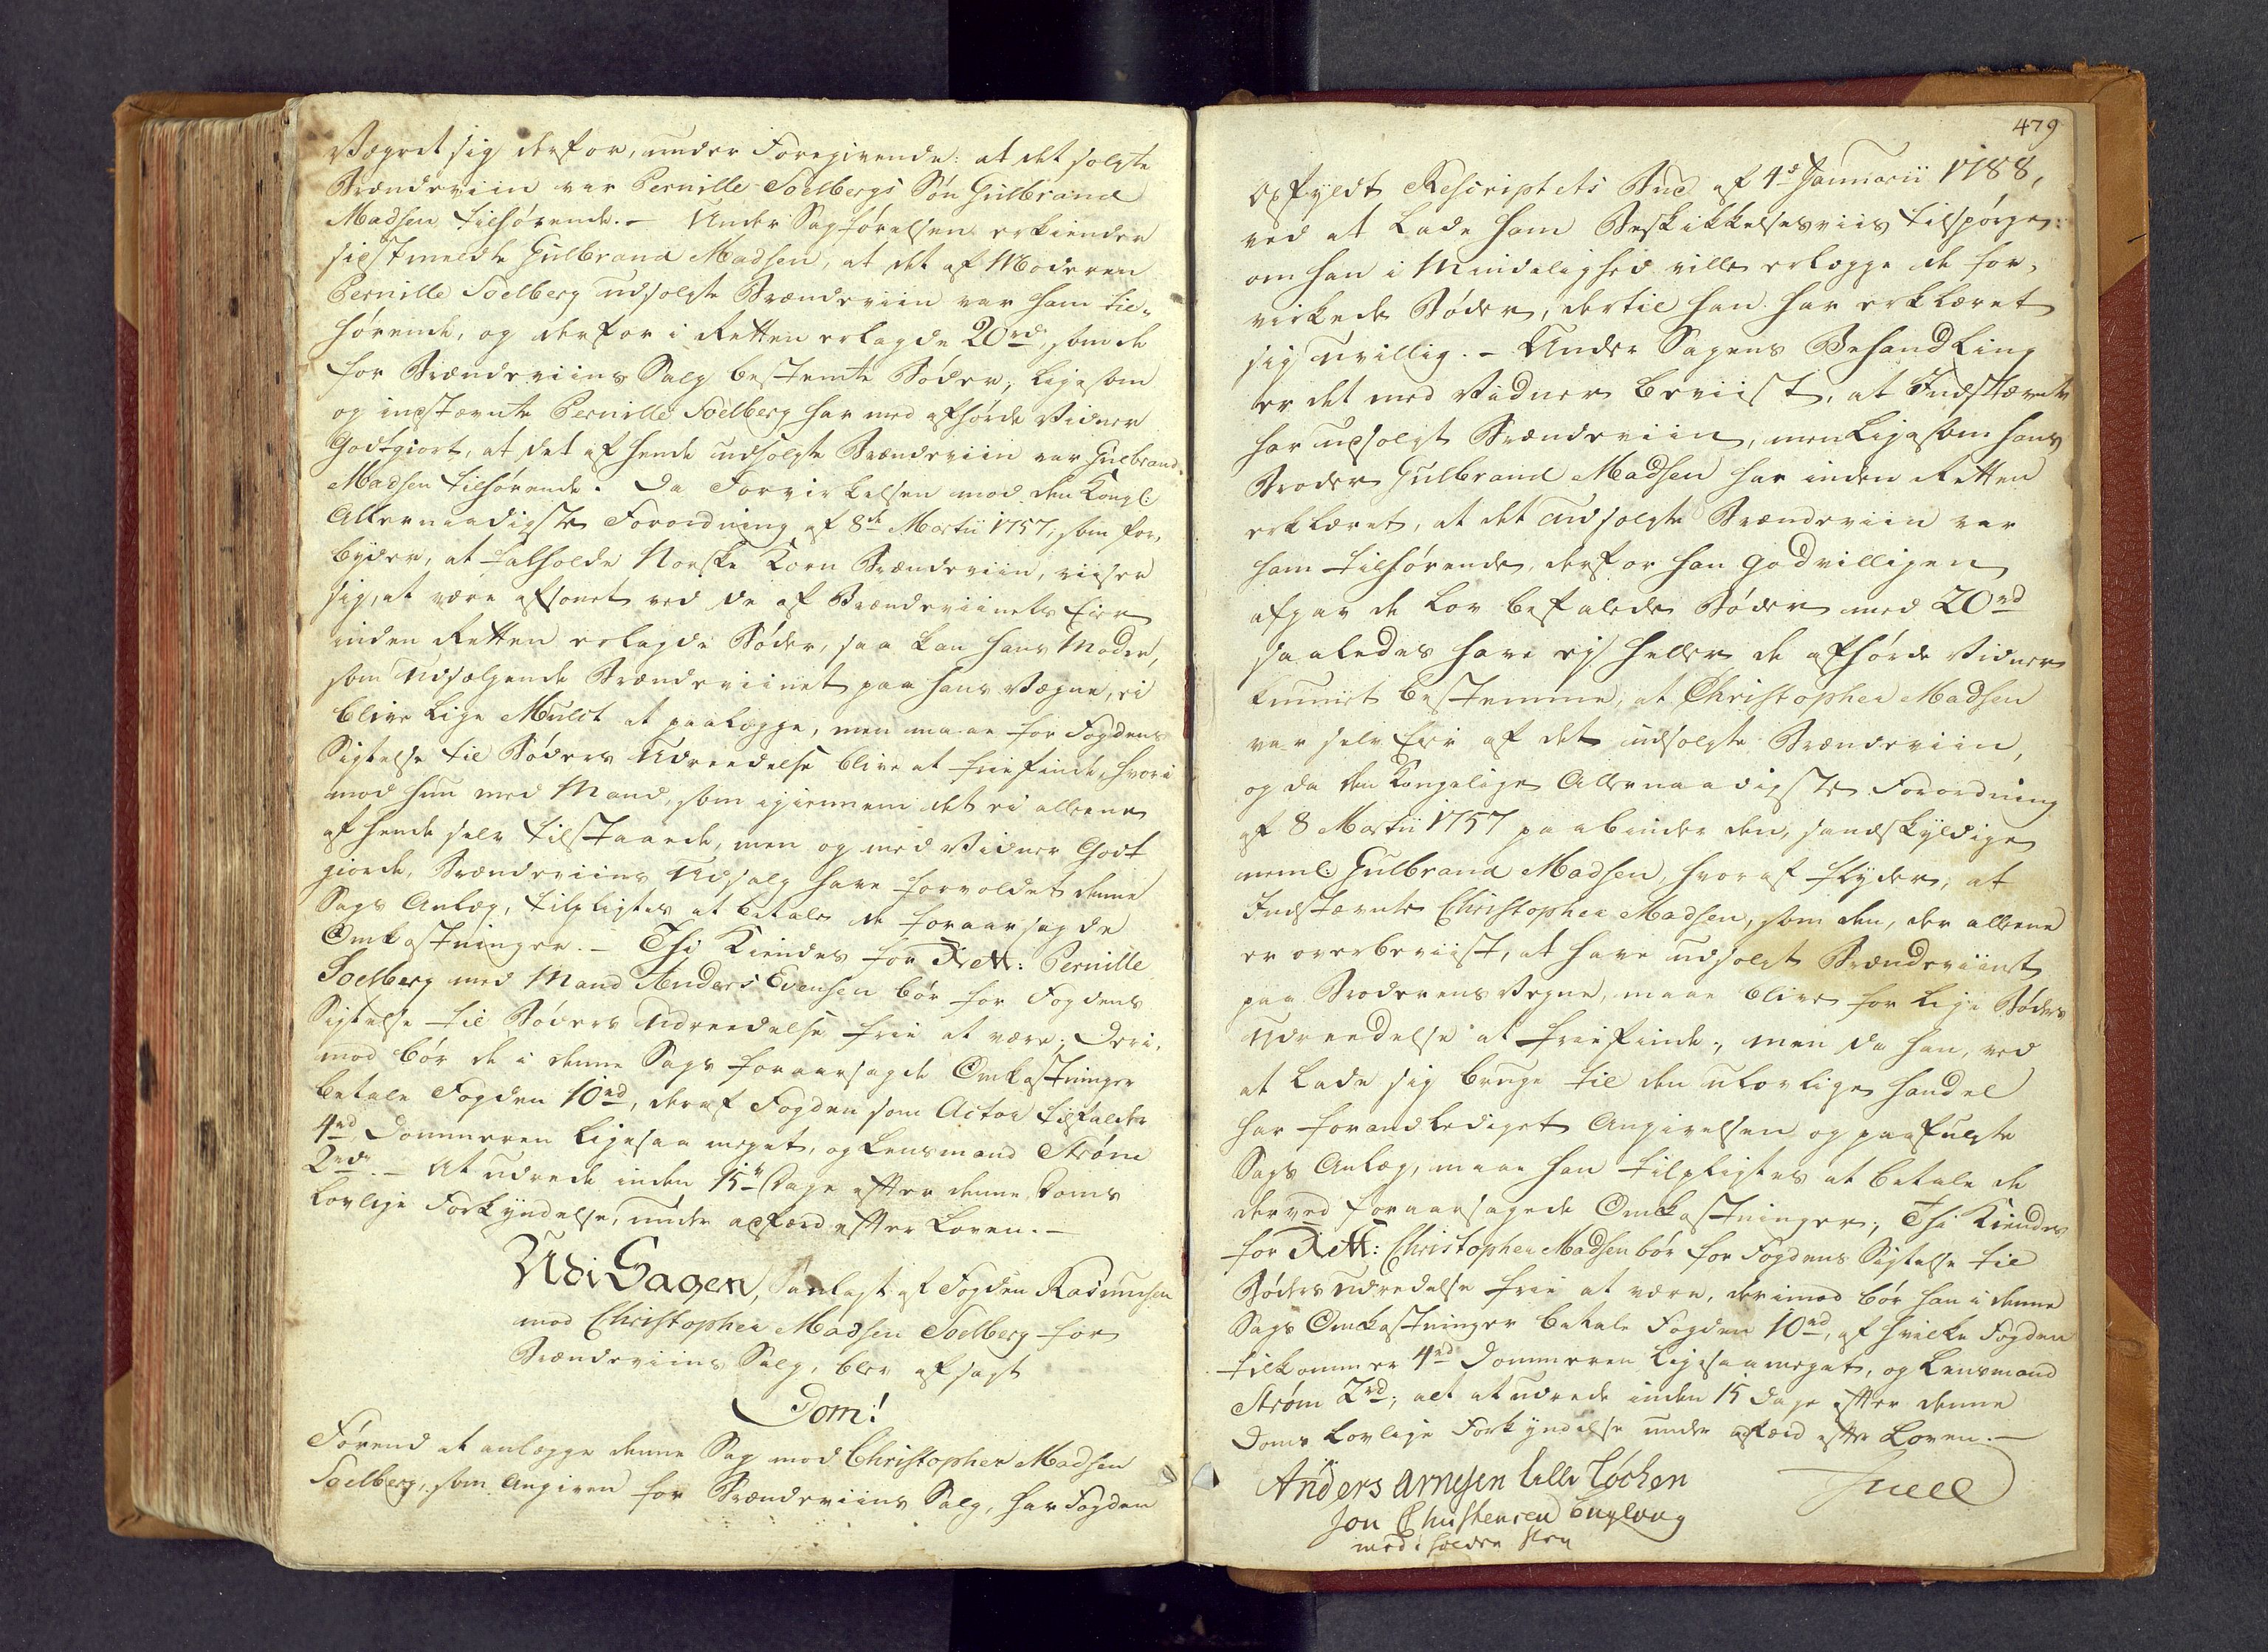 Vægret sig derfor, under Foregivende: at det solgte
Brændeviin var Pernille Soelbergs Søn Gulbrand
Madsen tilhørende. – Under Sagførelsen erkiender
sidstmeldte Gulbrand Madsen, at det af Moderen
Pernille Soelberg udsolgte Brændeviin var ham til-
hørende, og derfor i Retten erlagde 20 rd, som de
for Brændeviins Salg bestemte Bøder, ligesom
og indstævnte Pernille Soelberg har med afhørde Vidner
Godtgiort, at det af hende udsolgte Brændeviin var Gulbrand
Madsen tilhørende. Da Forvirkelsen mod den Kongl:
Allernaadigste Forordning af 8de Martii 1757, som for-
byder, at falholde Norske Korn Brændeviin, viiser
sig, at være afsonet ved de af Brændeviinets Eier
inden Retten erlagde Bøder, saa kan hans Moder,
som Udsælgende Brændeviinet paa hans Vegne, ei
blive lige Mulct at paalægge, men maae for Fogdens
Sigtelse til Bøders Udreedelse blive at friefinde, hvori
mod hun med Mand, som igiennem det ei alleene
af hende selv tilstaaede, men og med Vidner Godt
giorde, Brændeviins Udsalg have forvoldet denne
Sags Anlæg, tilpligtes at betale de foraarsagede
Omkostninger. – Thi Kiendes for Rett: Pernille
Soelberg med Mand Anders Evensen bør for Fogdens
Sigtelse til Bøders Udreedelse frie at være; Deri-
mod bør de i denne Sags foraarsagede Omkostninger
betale Fogden 10 rd, deraf Fogden som Actor tilfalder
4 rd, Dommeren ligesaa meget, og Lensmand Strøm
2 rd. – At udrede inden 15 Dage efter denne Doms
lovlige Forkyndelse, under adfærd efter Loven. –
Udi Sagen, anlagt af Fogden Rasmusen
mod Christopher Madsen Soelberg for
Brændeviins Salg, blev afsagt
Dom!
Førend at anlægge denne Sag mod Christopher Madsen
Soelberg, som Angiven for Brændeviins Salg, har Fogden
479
Opfyldt Rescriptets Bud af 4de Januarii 1788,
ved at lade ham Beskikkelsesviis tilspørge:
om han i Mindelighed ville erlægge de for-
virkede Bøder, dertil han har erklæret
sig uvillig. – Under Sagens Behandling
er det med Vidner beviist, at Indstævnte
har udsolgt Brændeviin, men ligesom hans
Broder Gulbrand Madsen har inden Retten
erklæret, at det udsolgte Brændeviin var
ham tilhørende, derfor han godvilligen
afgav de lov befalede Bøder med 20 rd
saaledes have ej heller de afhørde Vidner
kunnet bestemme, at Christopher Madsen
var selv Eier af det udsolgte Brændeviin,
og da den Kongelige Allernaadigste Forordning
af 8 Martii 1757 paabinder den, sandskyldige
neml: Gulbrand Madsen, hvoraf flyder, at
Indstævnte Christopher Madsen, som den, der alleene
er overbeviist, at have udsolgt Brændeviinet
paa Broderens Vegne, maae blive for lige Bøders
Udreedelse at friefinde; men da han, ved
at lade sig bruge til den ulovlige handel
har forandlediget Angivelsen og paafulgte
Sags Anlæg, maae han tilpligtes at betale de
derved foraarsagede Omkostninger; Thi Kiendes
for Rett: Christopher Madsen bør for Fogdens Sigtelse til
Bøders udredelse frie at være, derimod bør han i denne
Sags Omkostninger betale Fogden 10 rd, af hvilke Fogden
tilkommer 4 rd Dommeren ligesaameget, og Lensmand
Strøm 2 rd; alt at udrede inden 15 Dage efter denne
Doms lovlige Forkyndelse under adfærd efter Loven. –
Anders Arnesen Lille Løchen
Juell
Jon Christensen Englaug
med i holden Pen